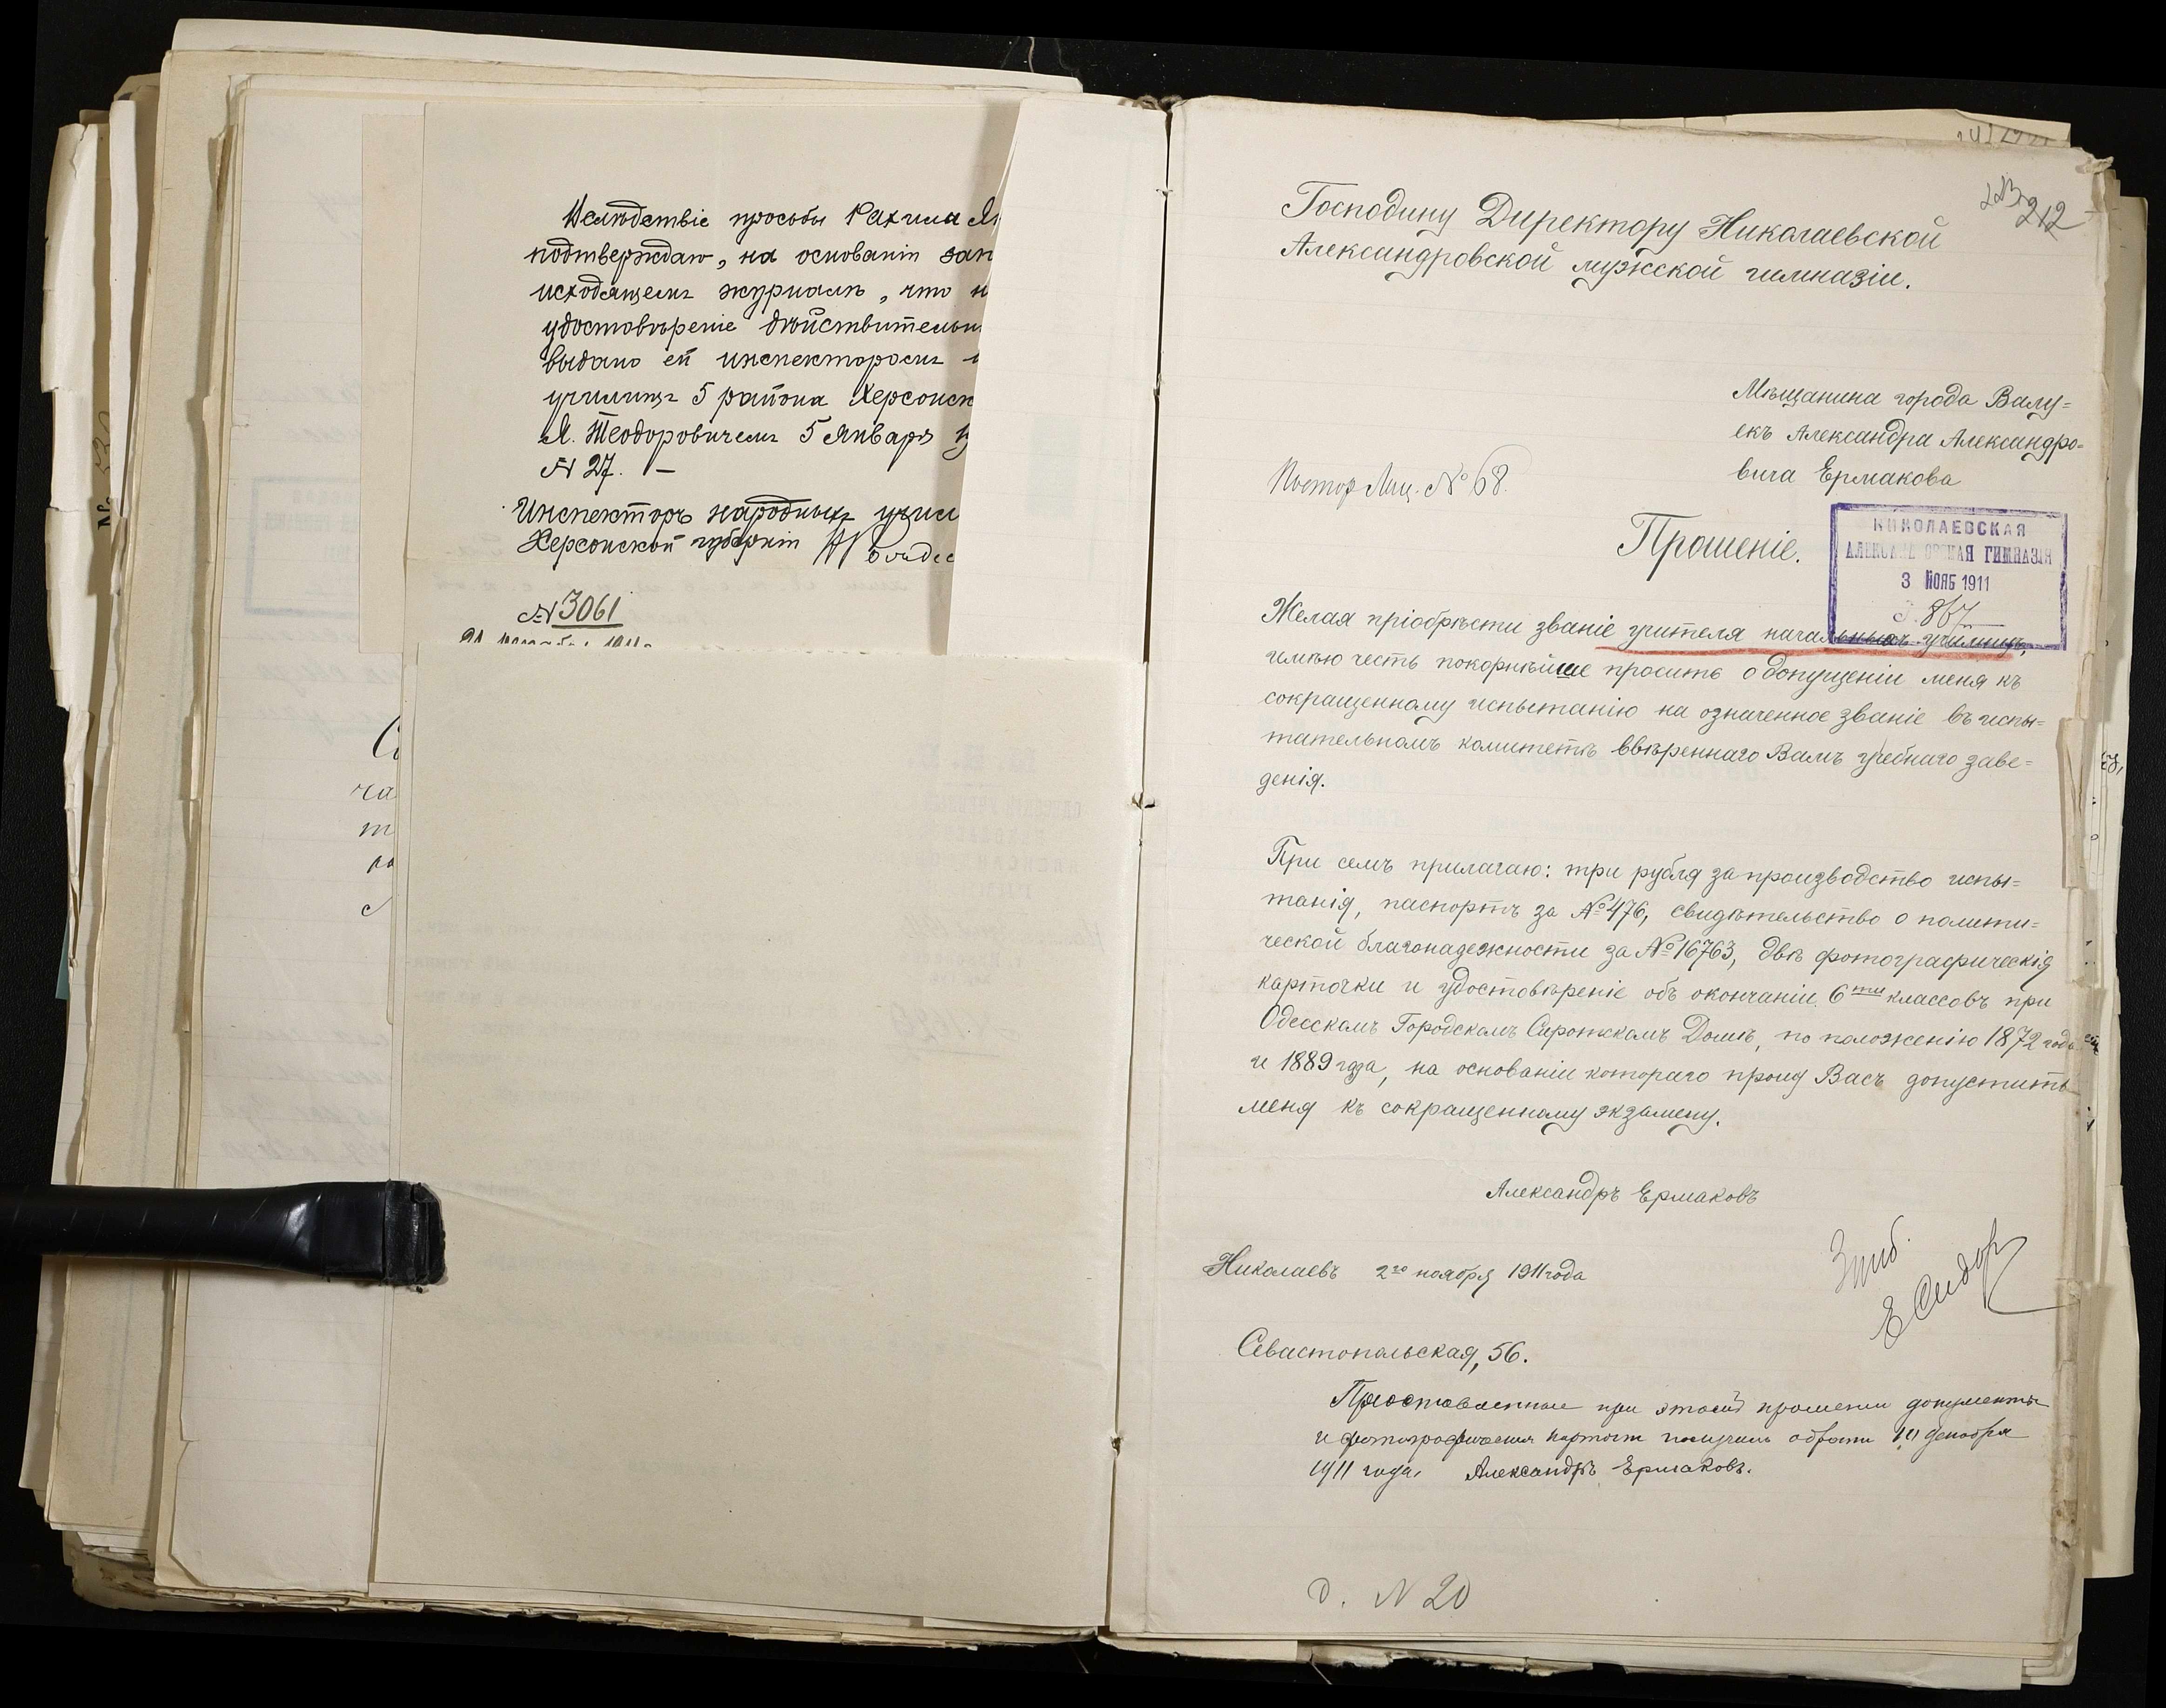 Вслѣдствіе просьбы Рахили
подтверждаю, на основаніи зап
исходящемъ журналѣ, что н
удостовѣреніе дѣйствительн
выдано ей инспекторомъ
училищъ 5 района Херсонск
Я. Теодоровичемъ 5 Января 19
№ 27. —
Инспекторъ народныхъ учил
Херсонской губерніи
№ 3061
21 1911 г.
Со
ча
т
с
223 212
Господину Директору Николаевской
Александровской мужской гимназіи.
Мѣщанина города Валу=
екъ Александра Александро=
вича Ермакова
Постор. Лиц. № 68.
Прошеніе.
НИКОЛАЕВСКАЯ
АЛЕКСАНДРОВСКАЯ ГИМНАЗІЯ
3 НОЯБ 1911
867
Желая пріобрѣсти званіе учителя начальныхъ училищъ,
имѣю честь покорнѣйше просить о допущеніи меня къ
сокращенному испытанію на означенное званіе въ испы=
тательномъ комитетѣ ввѣреннаго Вамъ учебнаго заве=
денія.
При семъ прилагаю: три рубля за производство испы=
танія, паспортъ за № 476, свидѣтельство о полити=
ческой благонадежности за № 16763, двѣ фотографическія
карточки и удостовѣреніе объ окончаніи 6ти классовъ при
Одесскомъ Городскомъ Сиротскомъ Домѣ, по положенію 1872 года
и 1889 года, на основаніи котораго прошу Васъ допустить
меня къ сокращенному экзамену.
Александръ Ермаковъ
Николаевъ 2го ноября 1911 года
Севастопольская, 56.
Представленные при этомъ прошеніи документы
и фотографическія карточки получилъ обратно декабря
1911 года. Александръ Ермаковъ.
д. N 20